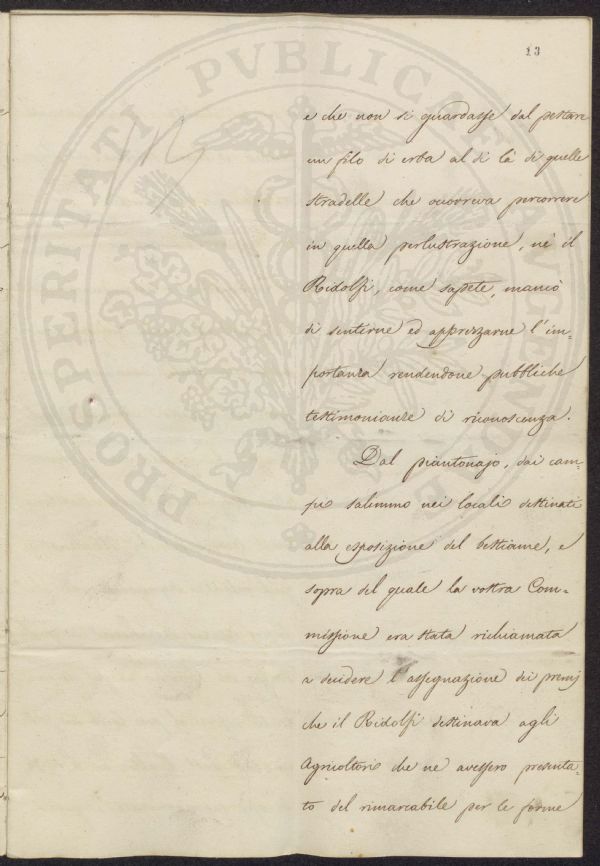 13
e che non si guardasse dal pestare
un filo di erba al di là di quelle
stradelle che occorreva percorrere
in quella perlustrazione, nè il
Ridolfi, come sapete, mancò
di sentirne ed apprezzarne l'im=
portanza rendendone pubbliche
testimonianze di riconoscenza.
Dal piantonajo, dai cam=
pi salimmo nei locali destinati
alla esposizione del bestiame, e
sopra del quale la vostra Com=
missione era stata richiamata
a decidere l'assegnazione dei premj
che il Ridolfi destinava agli
Agricoltori che ne avessero presenta=
to del rimarcabile per le forme
PROSPERITATI PVBLICAE AVGENDAE